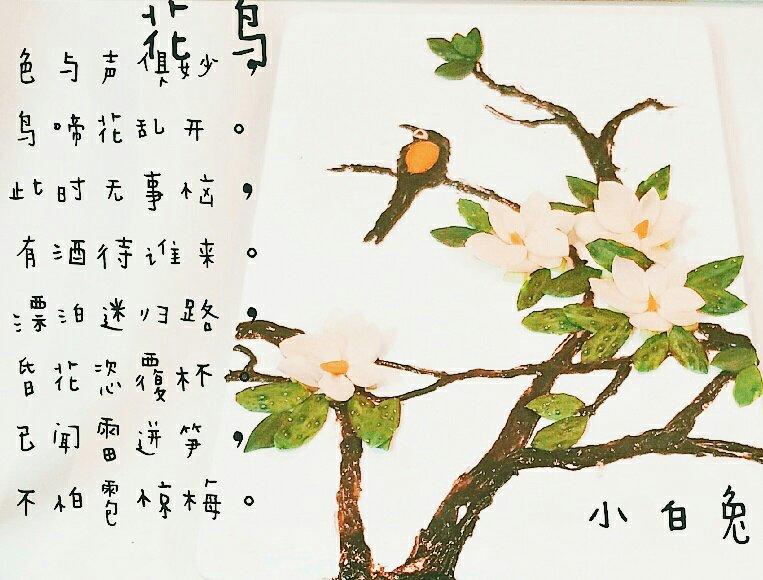 花鸟
色与声俱妙，
鸟啼花乱开。
此时无事恼，
有酒待谁来。
漂泊迷归路，
皆花恣覆杯。
已闻雷迸笋，
不怕雹惊梅。
小白兔